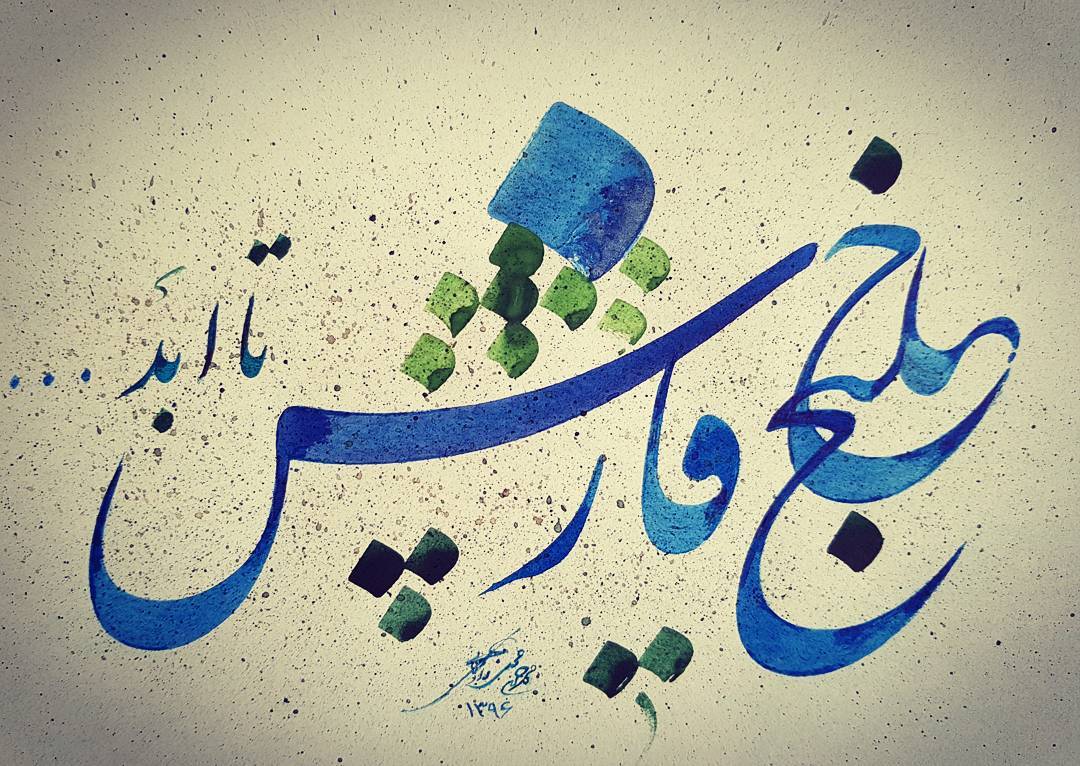 خلیج فارس تا ابد...
۱۳۹۶